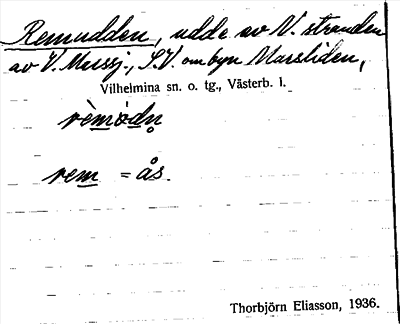 Remudden, udde av N. stranden
av V. Marssj., S.V. om byn Marsliden,
Vilhelmina sn. o. tg., Västerb. l.
rèmòdn̥
rem = ås.
Thorbjörn Eliasson, 1936.